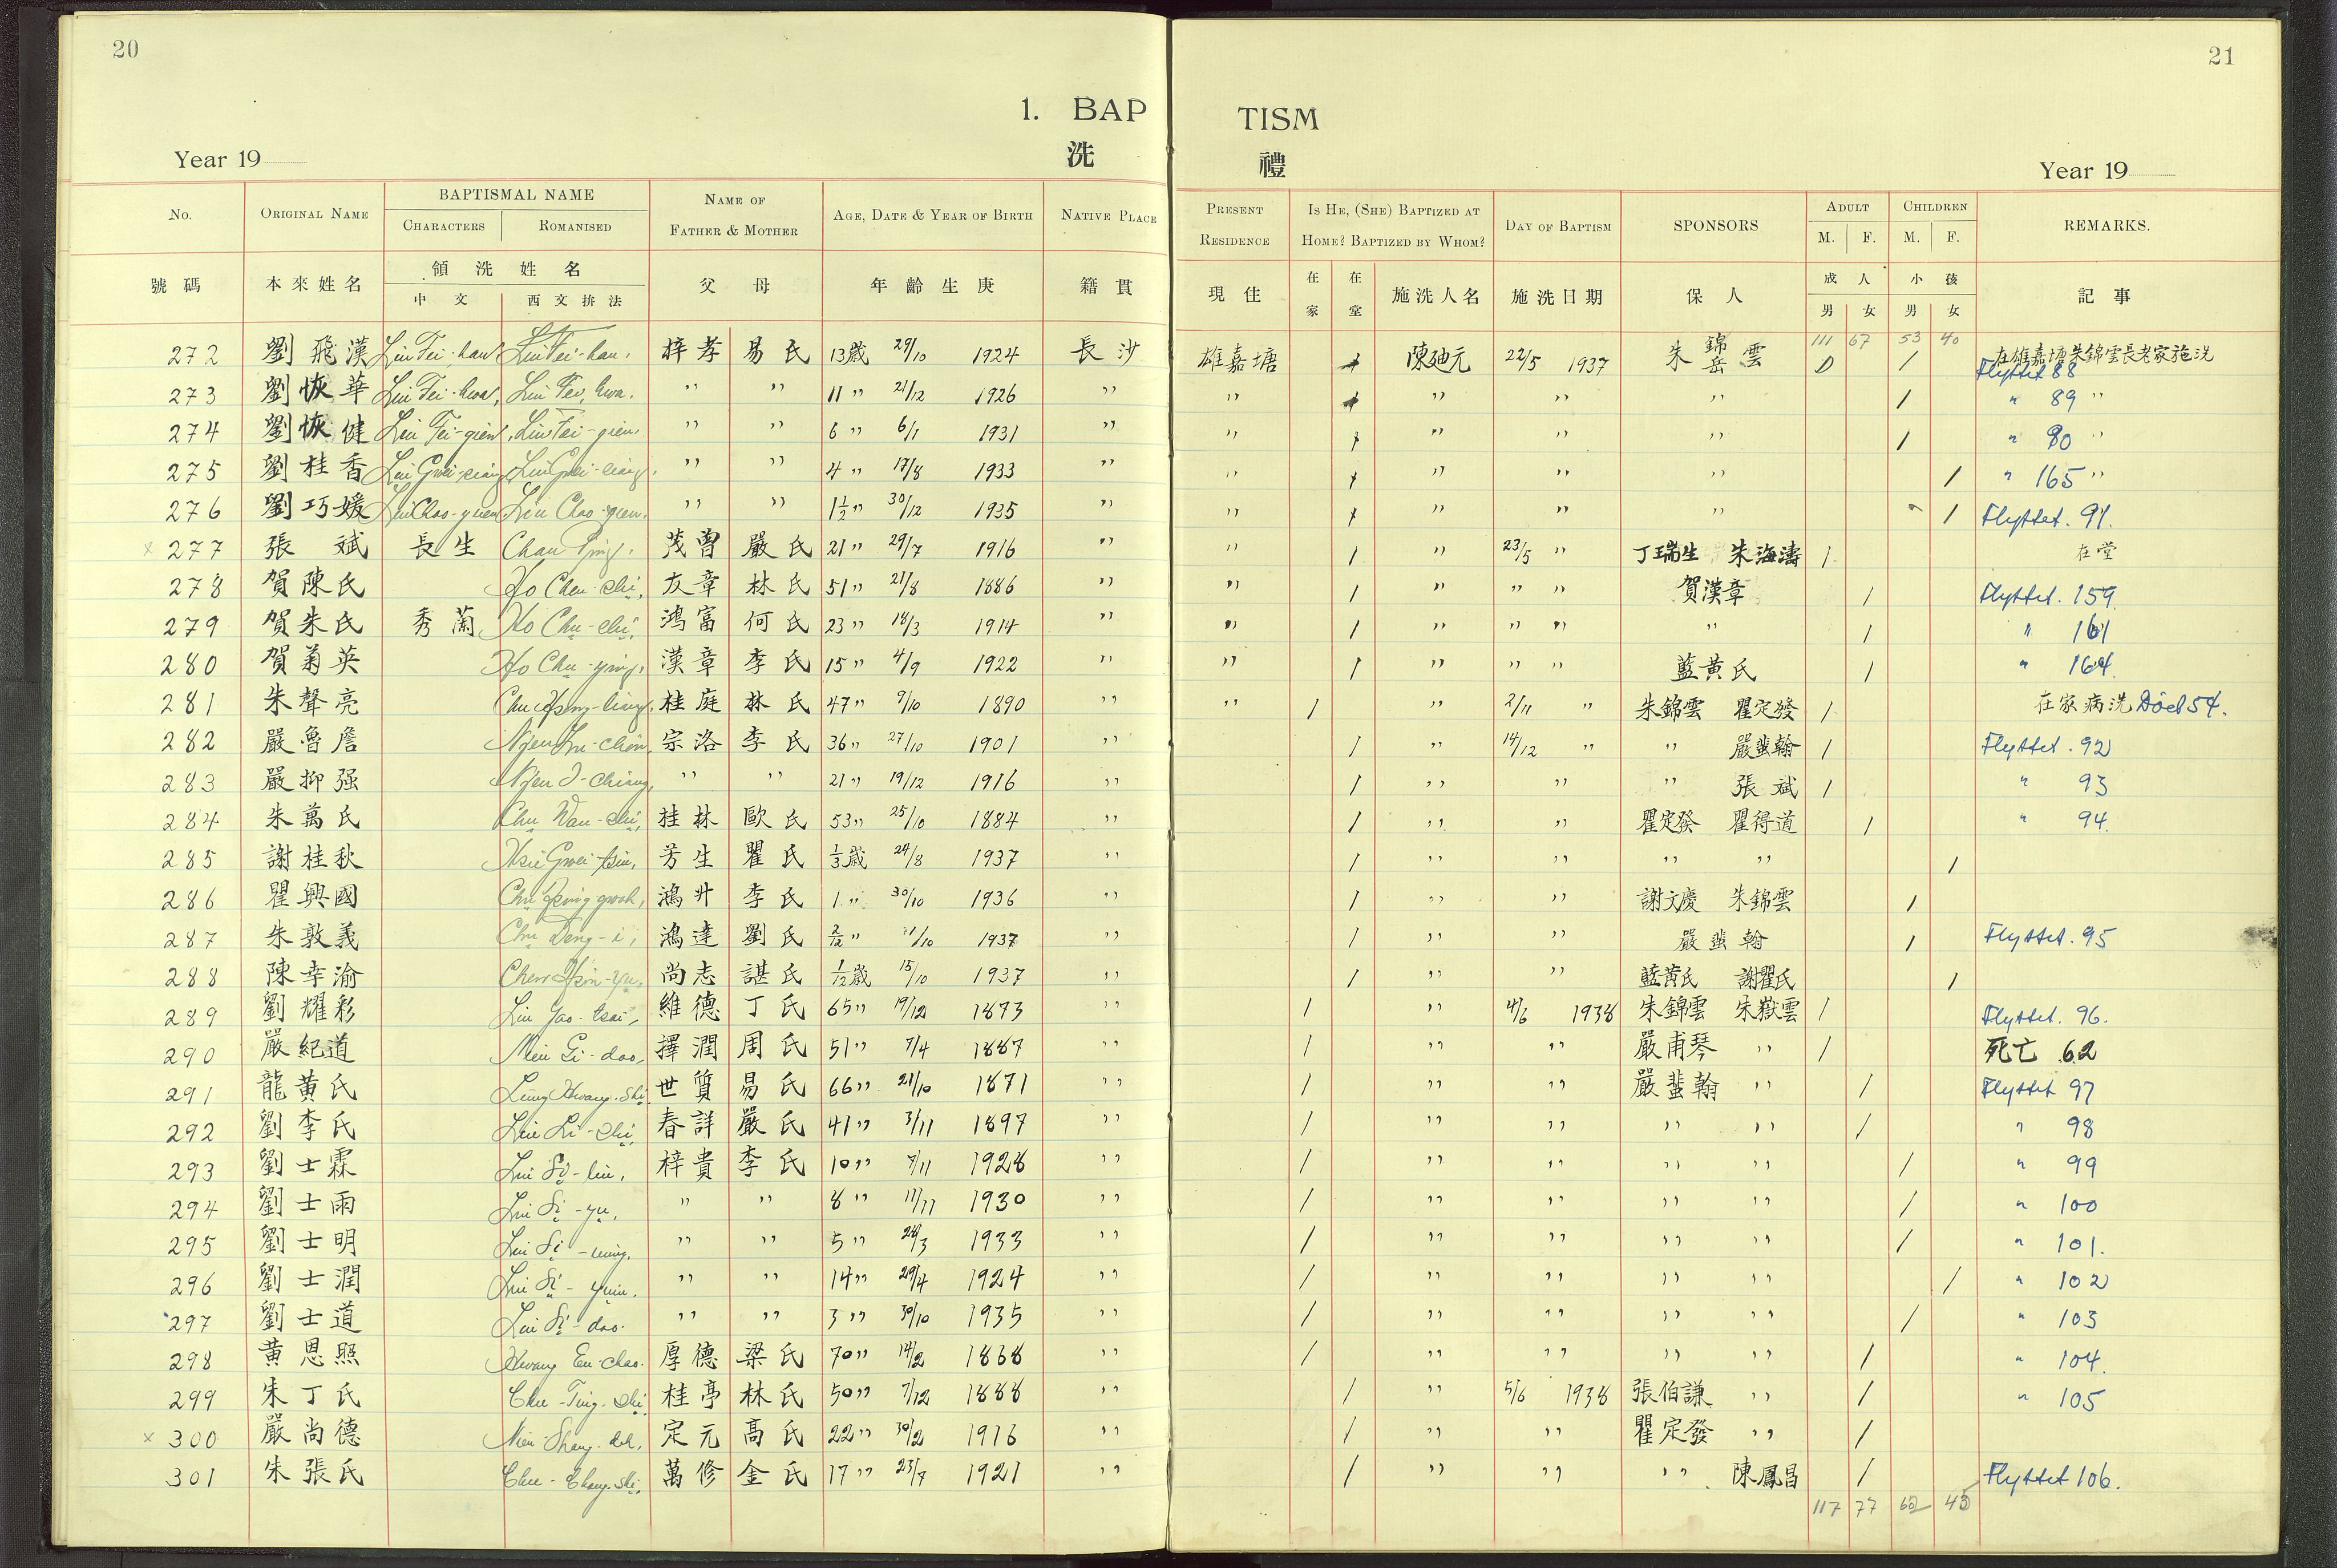 20
21
1. BAP TISM
洗 禮
Year 19
Year 19
No. ORIGINAL NAME BAPTISMAL NAME NAME OF FATHER & MOTHER AGE, DATE & YEAR OF BIRTH NATIVE PLACE PRESENT RESIDENCE IS HE, (SHE) BAPTIZED AT HOME? BAPTIZED BY WHOM? DAY OF BAPTISM SPONSORS ADULT CHILDREN REMARKS.
CHARACTERS ROMANISED M. F. M. F.
號碼 本來姓名 領洗姓名 父 母 年齡生庚 籍貫 現住 在家 在堂 施洗人名 施洗日期 保人 成人 小孩 記事
中文 西文拚法 男 女 男 女
111 67 53 40
272 劉飛漢 Liu Fei-han Liu Fei-han, 梓孝 易氏 13歲 29/10 1924 長沙 雄嘉塘 陳廸元 22/5 1937 朱錦雲 岳 / 在雄嘉塘朱錦雲長老家施洗 Flyttet 88
273 劉恢華 Liu Fei-hwa, Liu Fei-hwa. " " 11 " 21/12 1926 " " " " " / " 89 "
274 劉恢健 Liu Fei-gien, Liu Fei-gien, " " 6 " 6/1 1931 " " " " " / " 90 "
275 劉桂香 Liu Gwei-siang Liu Gwei-siang, " " 4 " 17/8 1933 " " " " " / " 165 "
276 劉巧媛 Liu Chao-yuen Liu Chao-yuen, " " 1½ " 30/12 1935 " " " " " / Flyttet. 91.
x 277 張斌 長生 Chan Ping, 茂曾 嚴氏 21 " 29/7 1916 " " / " 23/5 " 丁瑞生 朱海濤 / 在堂
278 賀陳氏 Ho Chen-shi, 友章 林氏 51 " 21/8 1886 " " / " " " 賀漢章 / Flyttet. 159
279 賀朱氏 秀蘭 Ho Chu-shi, 鴻富 何氏 23 " 18/3 1914 " " / " " " " / " 161
280 賀菊英 Ho Chu-ying, 漢章 李氏 15 " 4/9 1922 " " / " " " 藍黃氏 / " 164.
281 朱聲亮 桂庭 林氏 47 " 9/10 1890 " " / " 2/11 " 朱錦雲 瞿定發 / 在家病洗 Död 54.
282 嚴魯詹 宗洛 李氏 36 " 27/10 1901 " / " 14/12 " " 嚴蜚翰 / Flyttet. 92
283 嚴抑强 " " 21 " 19/12 1916 " / " " " 張斌 / " 93
284 朱萬氏 Chu Wan-shi, 桂林 歐氏 53 " 25/10 1884 " / " " 瞿定發 瞿得道 / " 94.
285 謝桂秋 芳生 瞿氏 1/3歲 24/8 1937 " / " " " " /
286 瞿興國 鴻升 李氏 1 " 30/10 1936 " / " " 謝文慶 朱錦雲 /
287 朱敦義 Chu Deng-i, 鴻達 劉氏 2/12 " 11/10 1937 " / " " 嚴蜚翰 / Flyttet. 95
288 陳幸渝 尚志 諶氏 1/12歲 15/10 1937 " / " " 藍黃氏 謝瞿氏 /
289 劉耀彩 Liu Yao-tsai, 維德 丁氏 65 " 19/12 1873 " / " 4/6 1938 朱錦雲 朱嶽雲 / Flyttet. 96.
290 嚴紀道 Nien Gi-dao, 擇潤 周氏 51 " 7/4 1887 " / " " 嚴甫琴 " / 死亡 62
291 龍黃氏 Lung Hwang-Shi, 世質 易氏 66 " 21/10 1871 " / " " 嚴蜚翰 " / Flyttet 97
292 劉李氏 Liu Li-shi, 春詳 嚴氏 41 " 3/11 1897 " / " " " " / " 98
293 劉士霖 Liu Si-lin, 梓貴 李氏 10 " 7/11 1928 " / " " " " / " 99
294 劉士雨 Liu Si-yu, " " 8 " 11/11 1930 " / " " " " / " 100
295 劉士明 Liu Si-ming, " " 5 " 24/3 1933 " / " " " " / " 101.
296 劉士潤 Liu Si-yuin. " " 14 " 29/4 1924 " / " " " " / " 102
297 劉士道 Liu Si-dao. " " 3 " 30/10 1935 " / " " " " / " 103
298 黃恩照 Hwang En-chao. 厚德 梁氏 70 " 14/2 1868 " / " " " " / " 104.
299 朱丁氏 Chu-Ting-Shi 桂亭 林氏 50 " 7/12 1888 " / " 5/6 1938 張伯謙 " / " 105
x 300 嚴尚德 Nien Shang-deh, 定元 高氏 22 " 30/2 1916 " / " " 瞿定發 " /
301 朱張氏 Chu-Chang-Shi, 萬修 金氏 17 " 23/7 1921 " / " " " 陳鳳昌 / Flyttet 106.
117 77 62 45